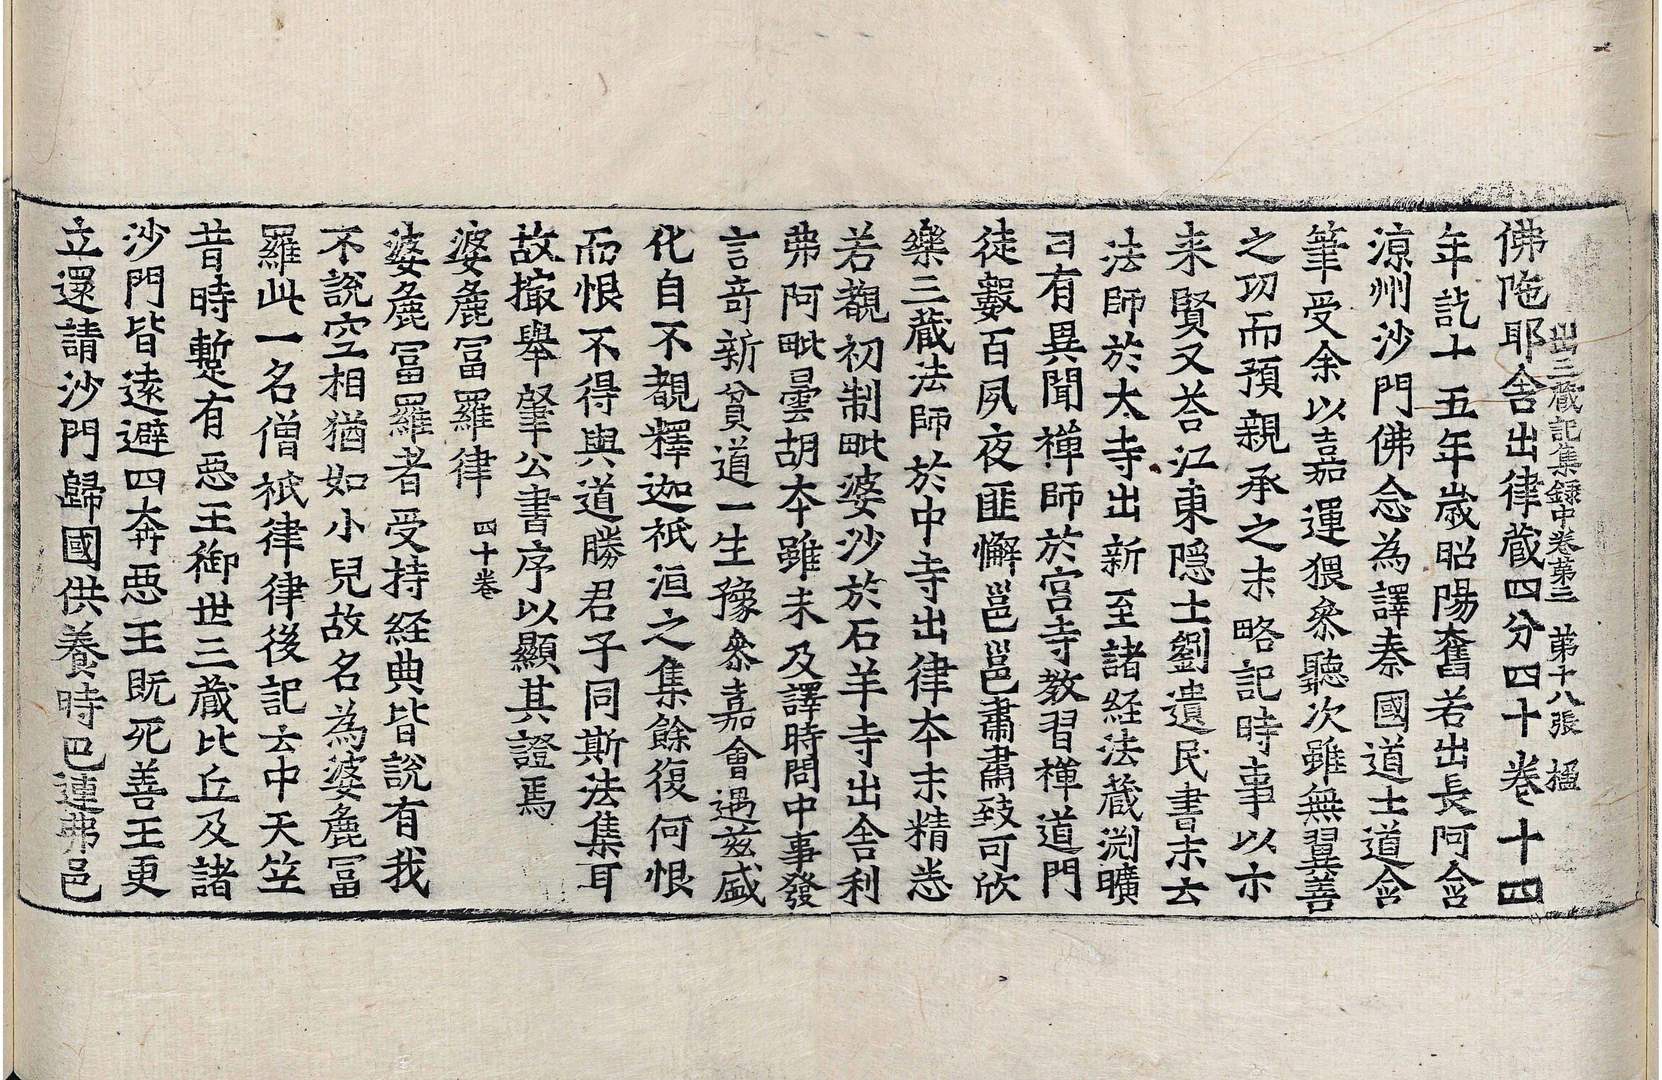 出三藏記集錄中卷第三　第十八張　楹
佛陁耶舍出律藏四分四十卷十四
年訖十五年歲昭陽奮若出長阿含
涼州沙門佛念為譯秦國道士道含
筆受余以嘉運猥叅聽次雖無翼善
之功而預親承之末略記時事以示
来賢又荅江東隠士劉遺民書末云
法師於大寺出新至諸経法藏渕曠
日有異聞禅師於宮寺教習禅道門
徒數百夙夜匪懈邕邕肅肅致可欣
樂三藏法師於中寺出律本末精悉
若覩初制毗婆沙於石羊寺出舍利
弗阿毗曇胡本雖未及譯時問中事發
言竒新貧道一生豫叅嘉會遇茲盛
化自不覩釋迦祇洹之集餘復何恨
而恨不得與道勝君子同斯法集耳
故撮舉肇公書序以顯其證焉
婆麁冨羅律 四十卷
婆麁冨羅者受持経典皆説有我
不說空相猶如小兒故名為婆麁冨
羅此一名僧祇律律後記云中天竺
昔時蹔有惡王御世三藏比丘及諸
沙門皆遠避四奔惡王既死善王更
立還請沙門歸國供養時巴連弗邑